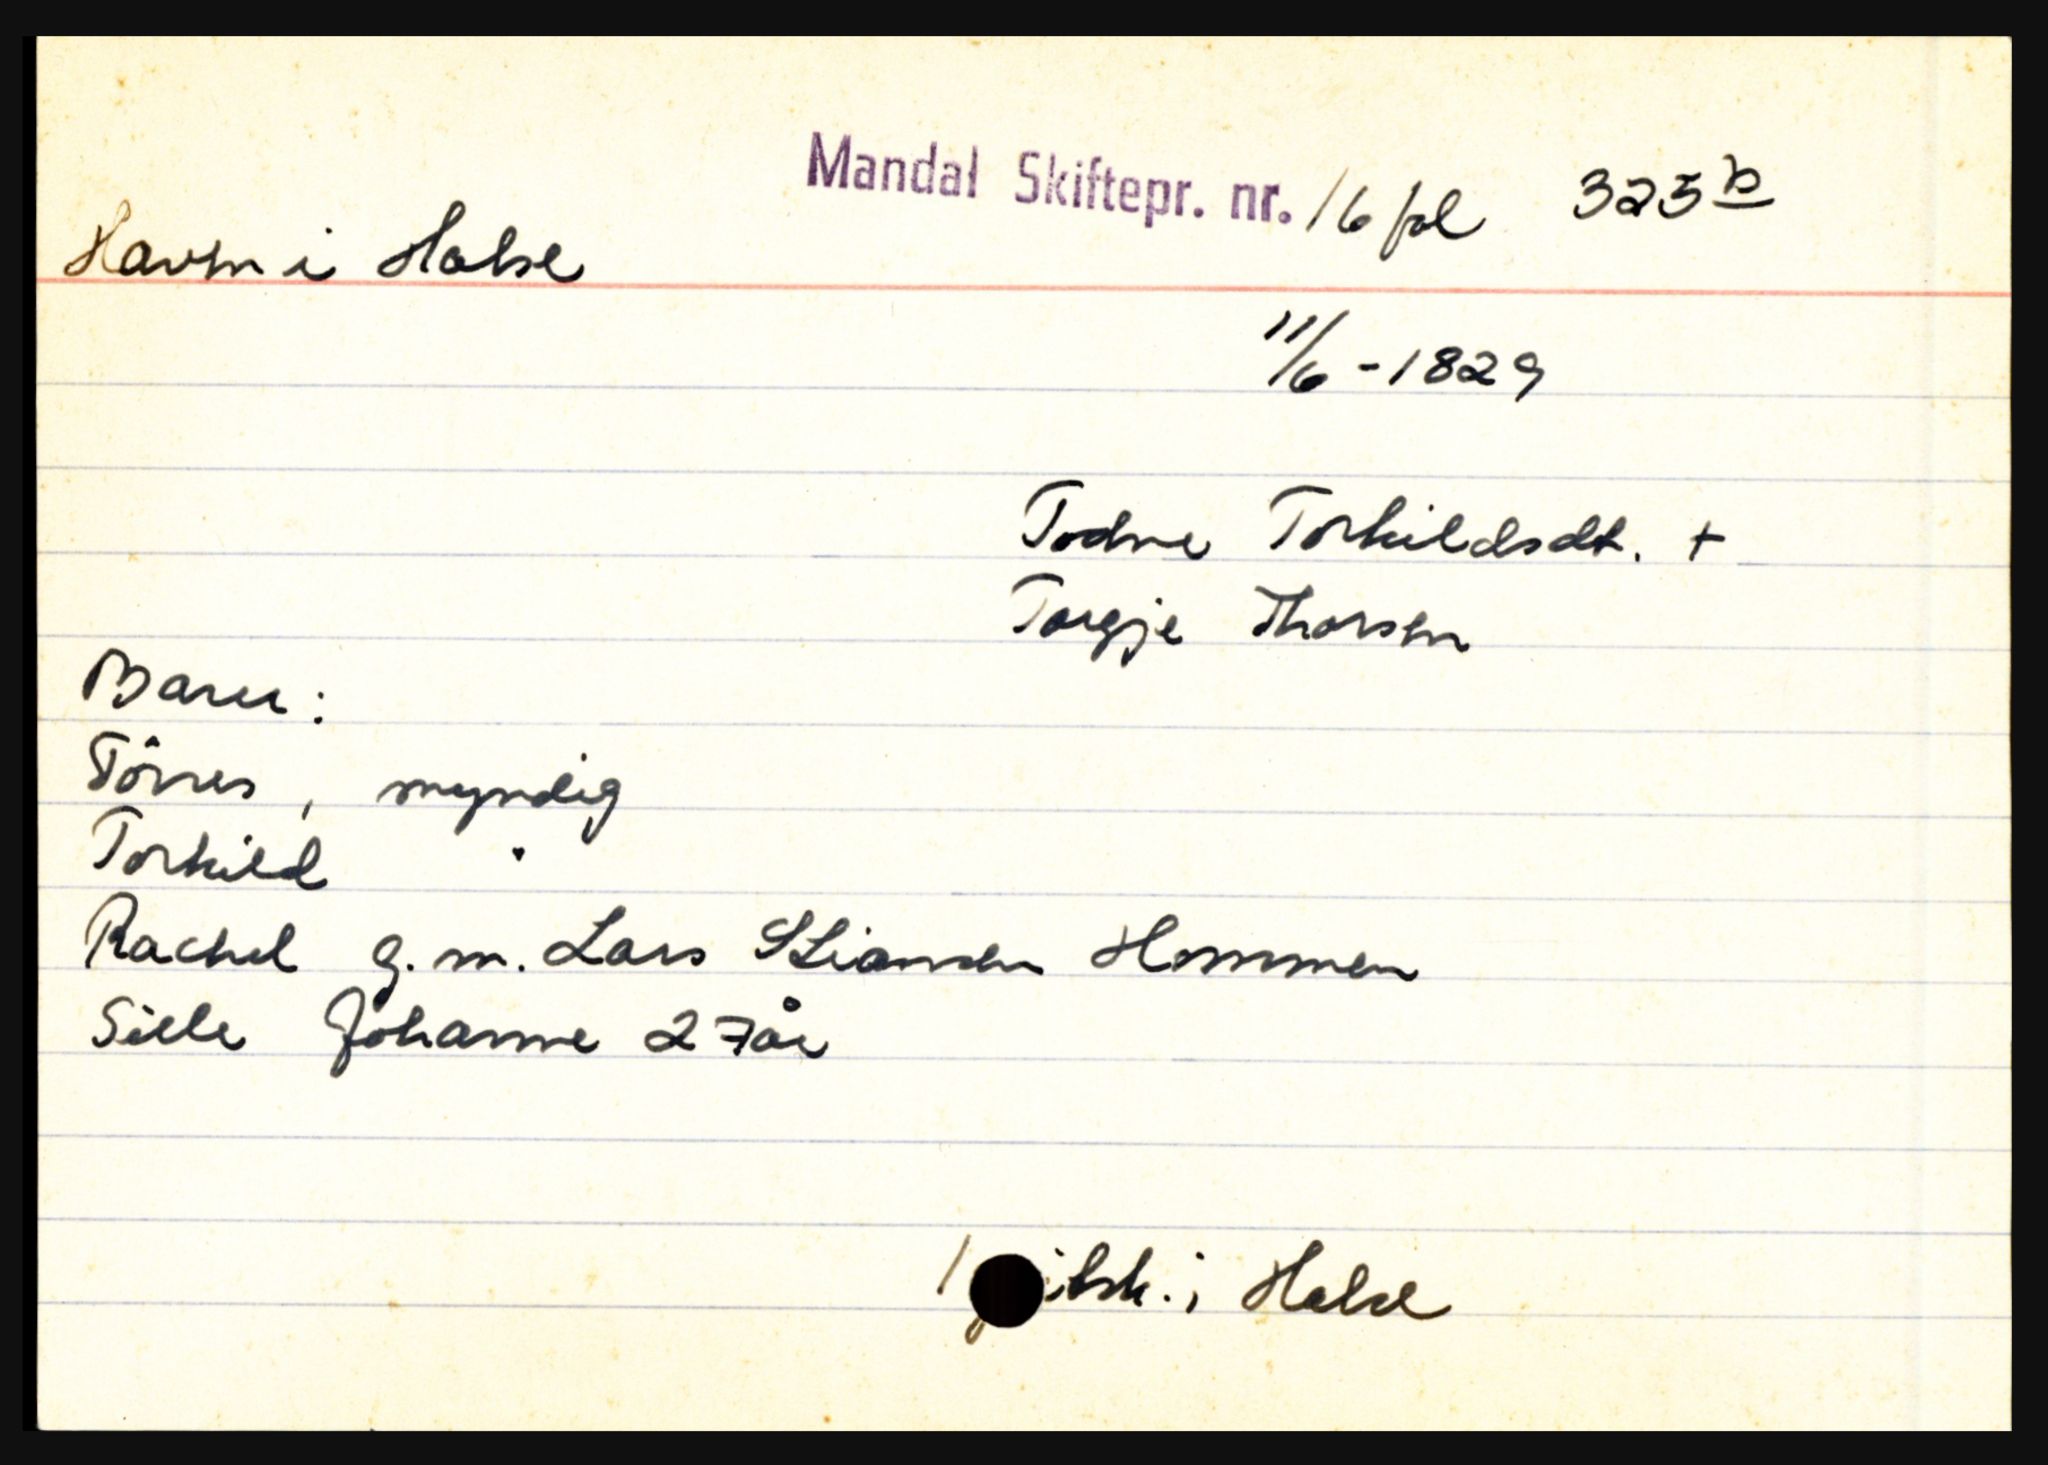 Mandal Skiftepr. nr. 16 fol 325 b
Havn i Halse
11/6 - 1829
Todne Torkildsdt. +
Torgje Thorsen
Barn:
Törres, myndig
Torkild "
Rachel g.m. Lars Stiansen Hommen
Sille Johanne 27 år
i Halse